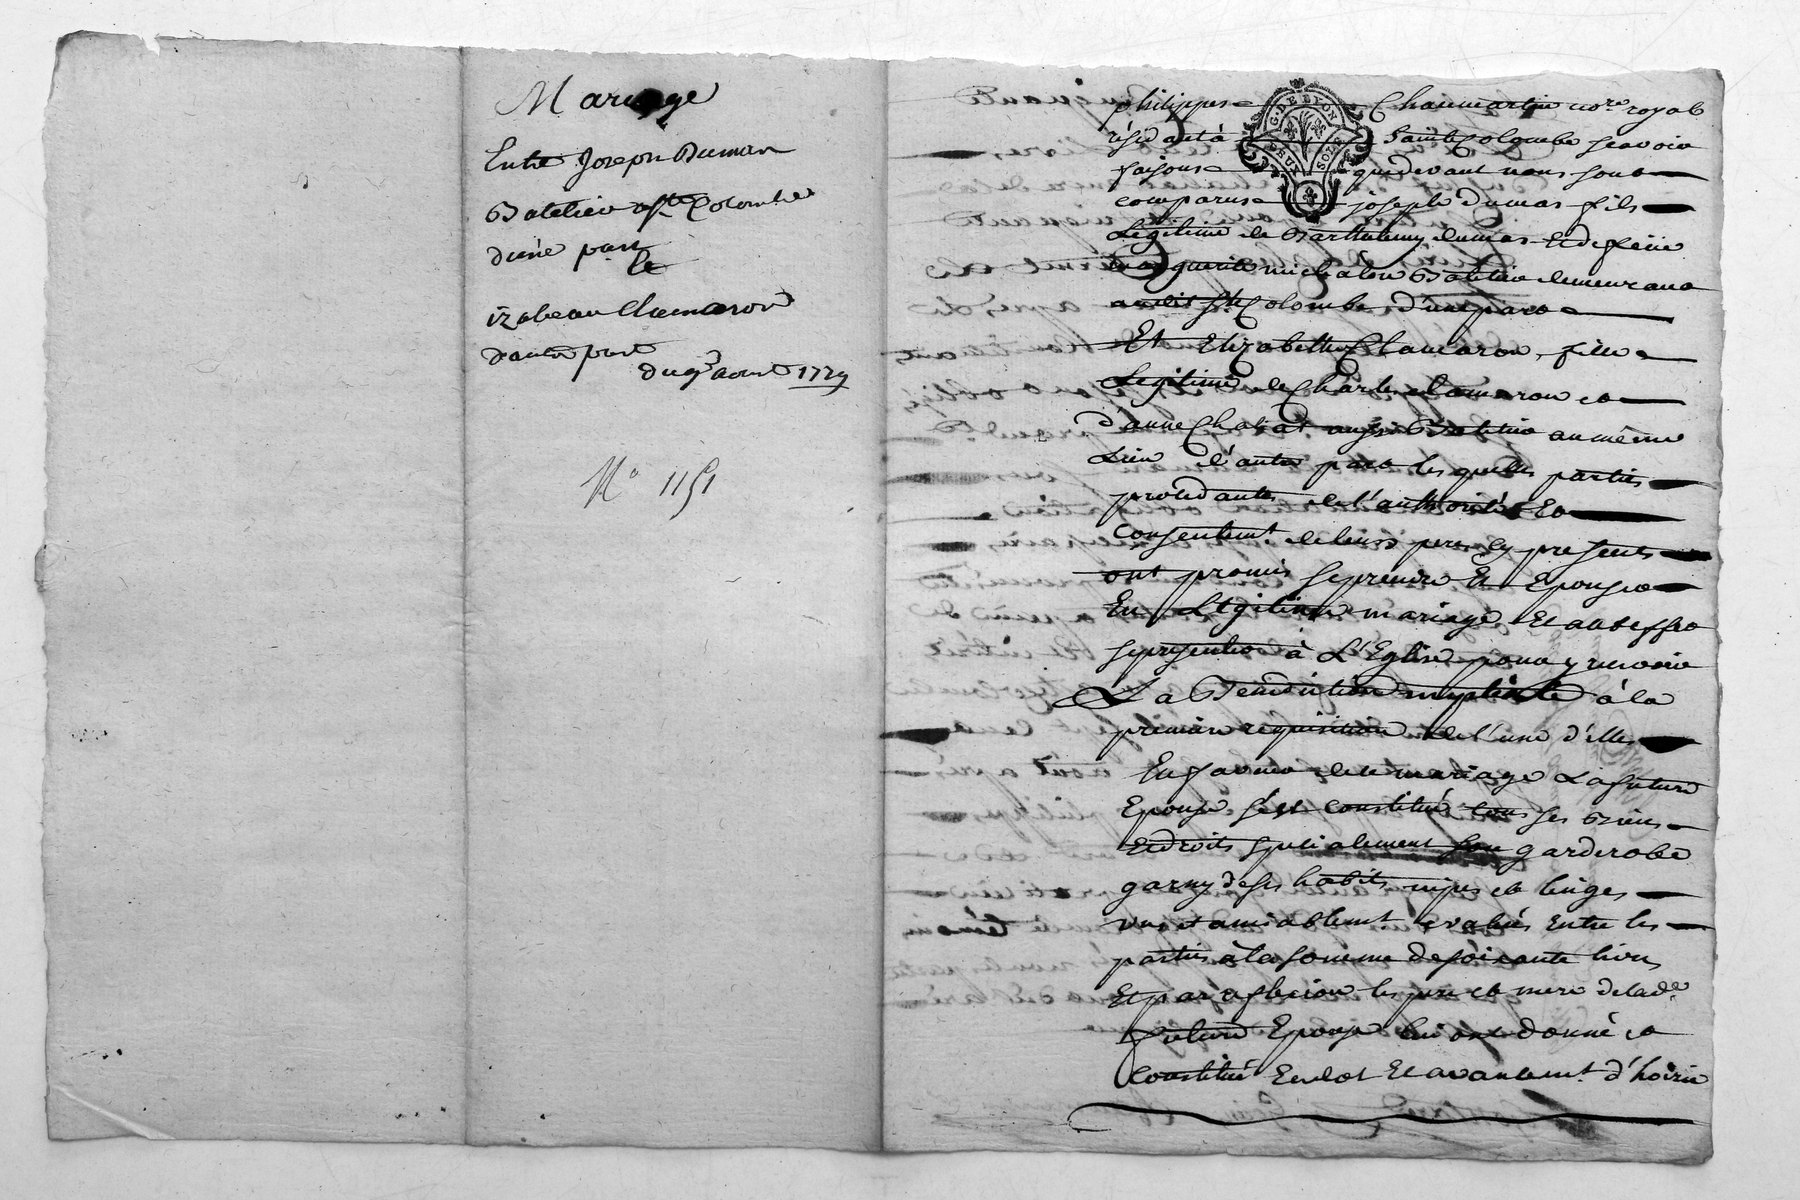 Mariage
Entre Joseph Dumas
Batelier a Ste Colombe
d'une part
et
izabeau Clamaron
d'autre part
du 9e Aoust 1729
No 1151
philippes Chaumartin nore royal
résidant à Sainte Colombe sçavoir
faisons que devant nous sont
comparus joseph dumas fils
Legitime de Barthelemy dumas Et de feüe
marguerite michalon Batelier demeurant
audit Ste Colombe d'une part
Et Elizabeth Clamaron, fille
Legitime de Charle Clamaron et
d'anne Chatat aussi Batelier au même
Lieu d'autre part les quelles parties
procedantes de l'authorité Et
consentemt de leurs peres cy presents
ont promis se prendre Et Epouser
En Legitime mariage Et au d effet
se presenter à L'Eglise pour y recevoir
La Benediction nuptiale à la
premiere requisition de l'une d'elles
En faveur de ce mariage La future
Epouse s'est constitué tous ses Biens
Et droits specialement son garderobe
garny de ses habits nipes et linges
vus et amiablemt evalués Entre les
parties à la somme de soixante livres
Et par affection les pere et mere de lade
future Epouse lui ont donné et
constitué En dot Et avancemt d'hoirie
G. DE LYON
DEUX SOLS